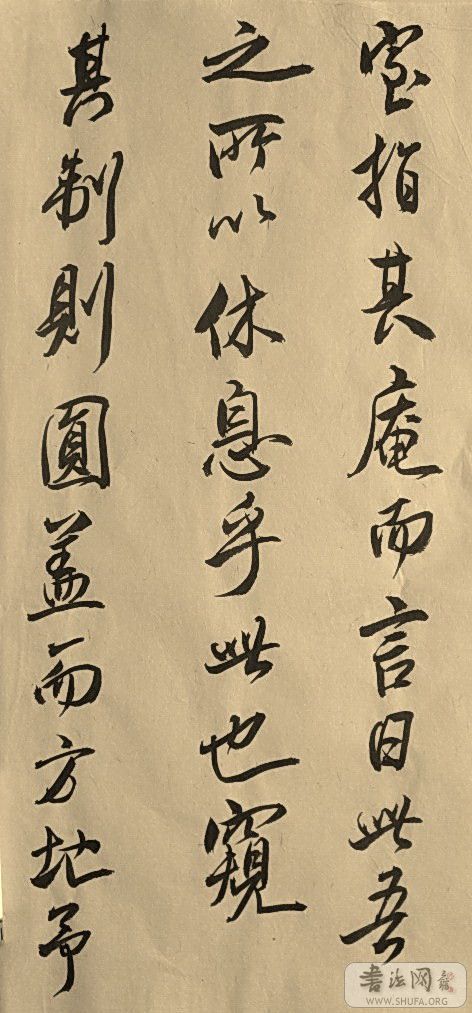 室指其庵而言曰此吾
之所以休息乎此也窺
其制則圓盖而方地予
書法网
WWW.SHUFA.ORG